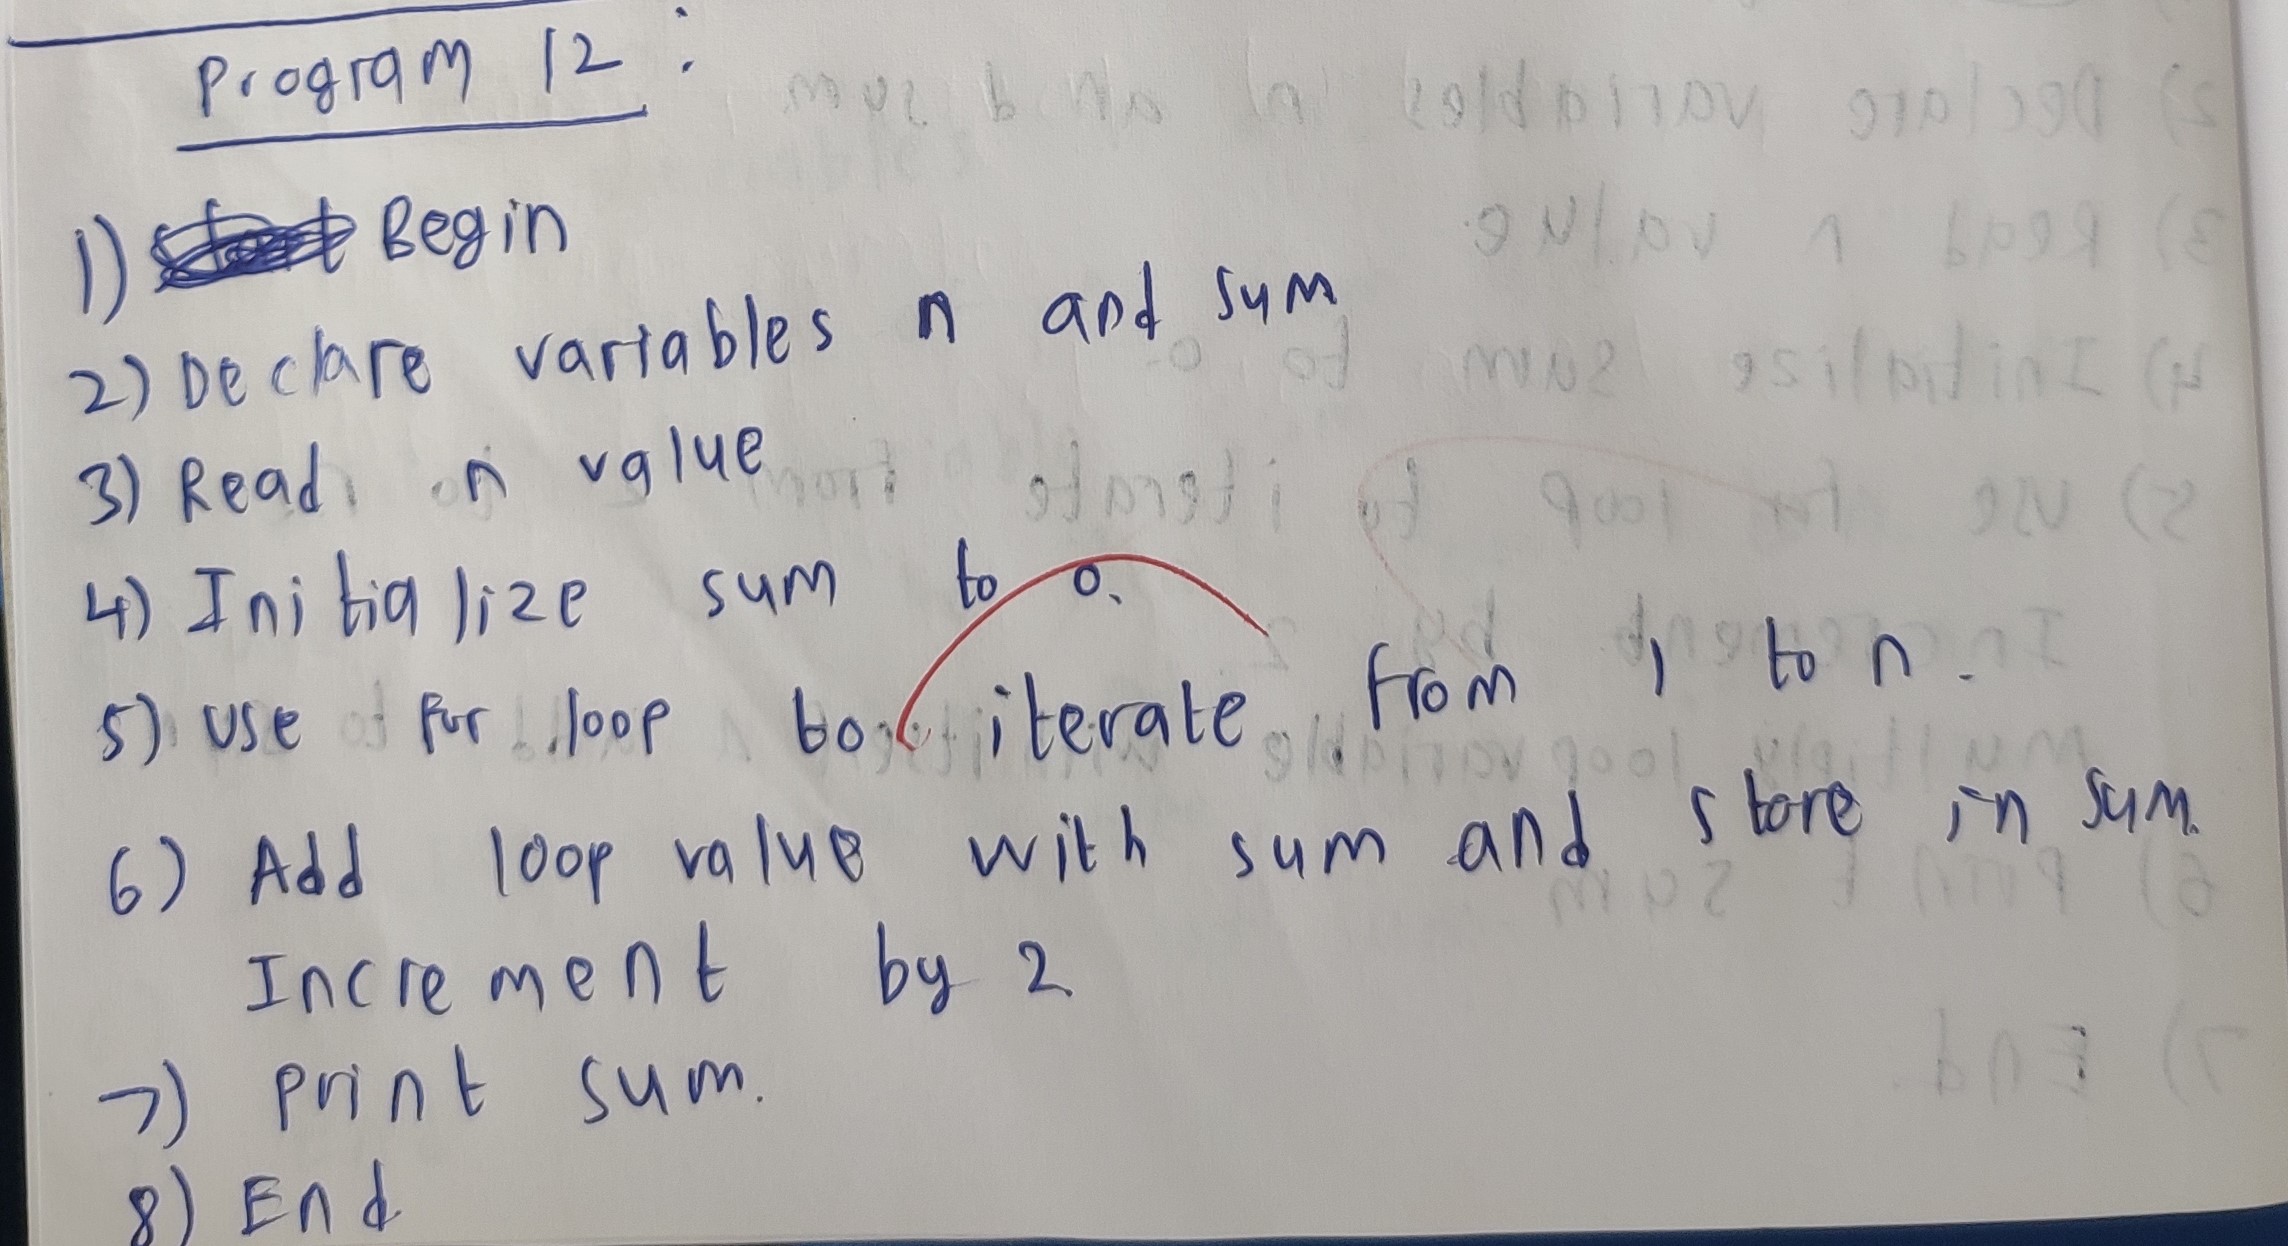 Program 12 :
1) Begin
2) Declare variables n and sum
3) Read n value
4) Initialize sum to 0.
5) Use for loop to iterate from 1 to n.
6) Add loop value with sum and store in sum.
Increment by 2
7) Print sum.
8) End